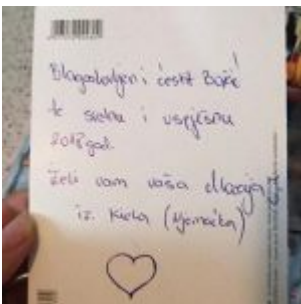 Blagoslovljen i čestit Božić!
te sretnu i uspješnu
2018 god.
želi vam vaša Marija
iz Kiela (Njemačka)